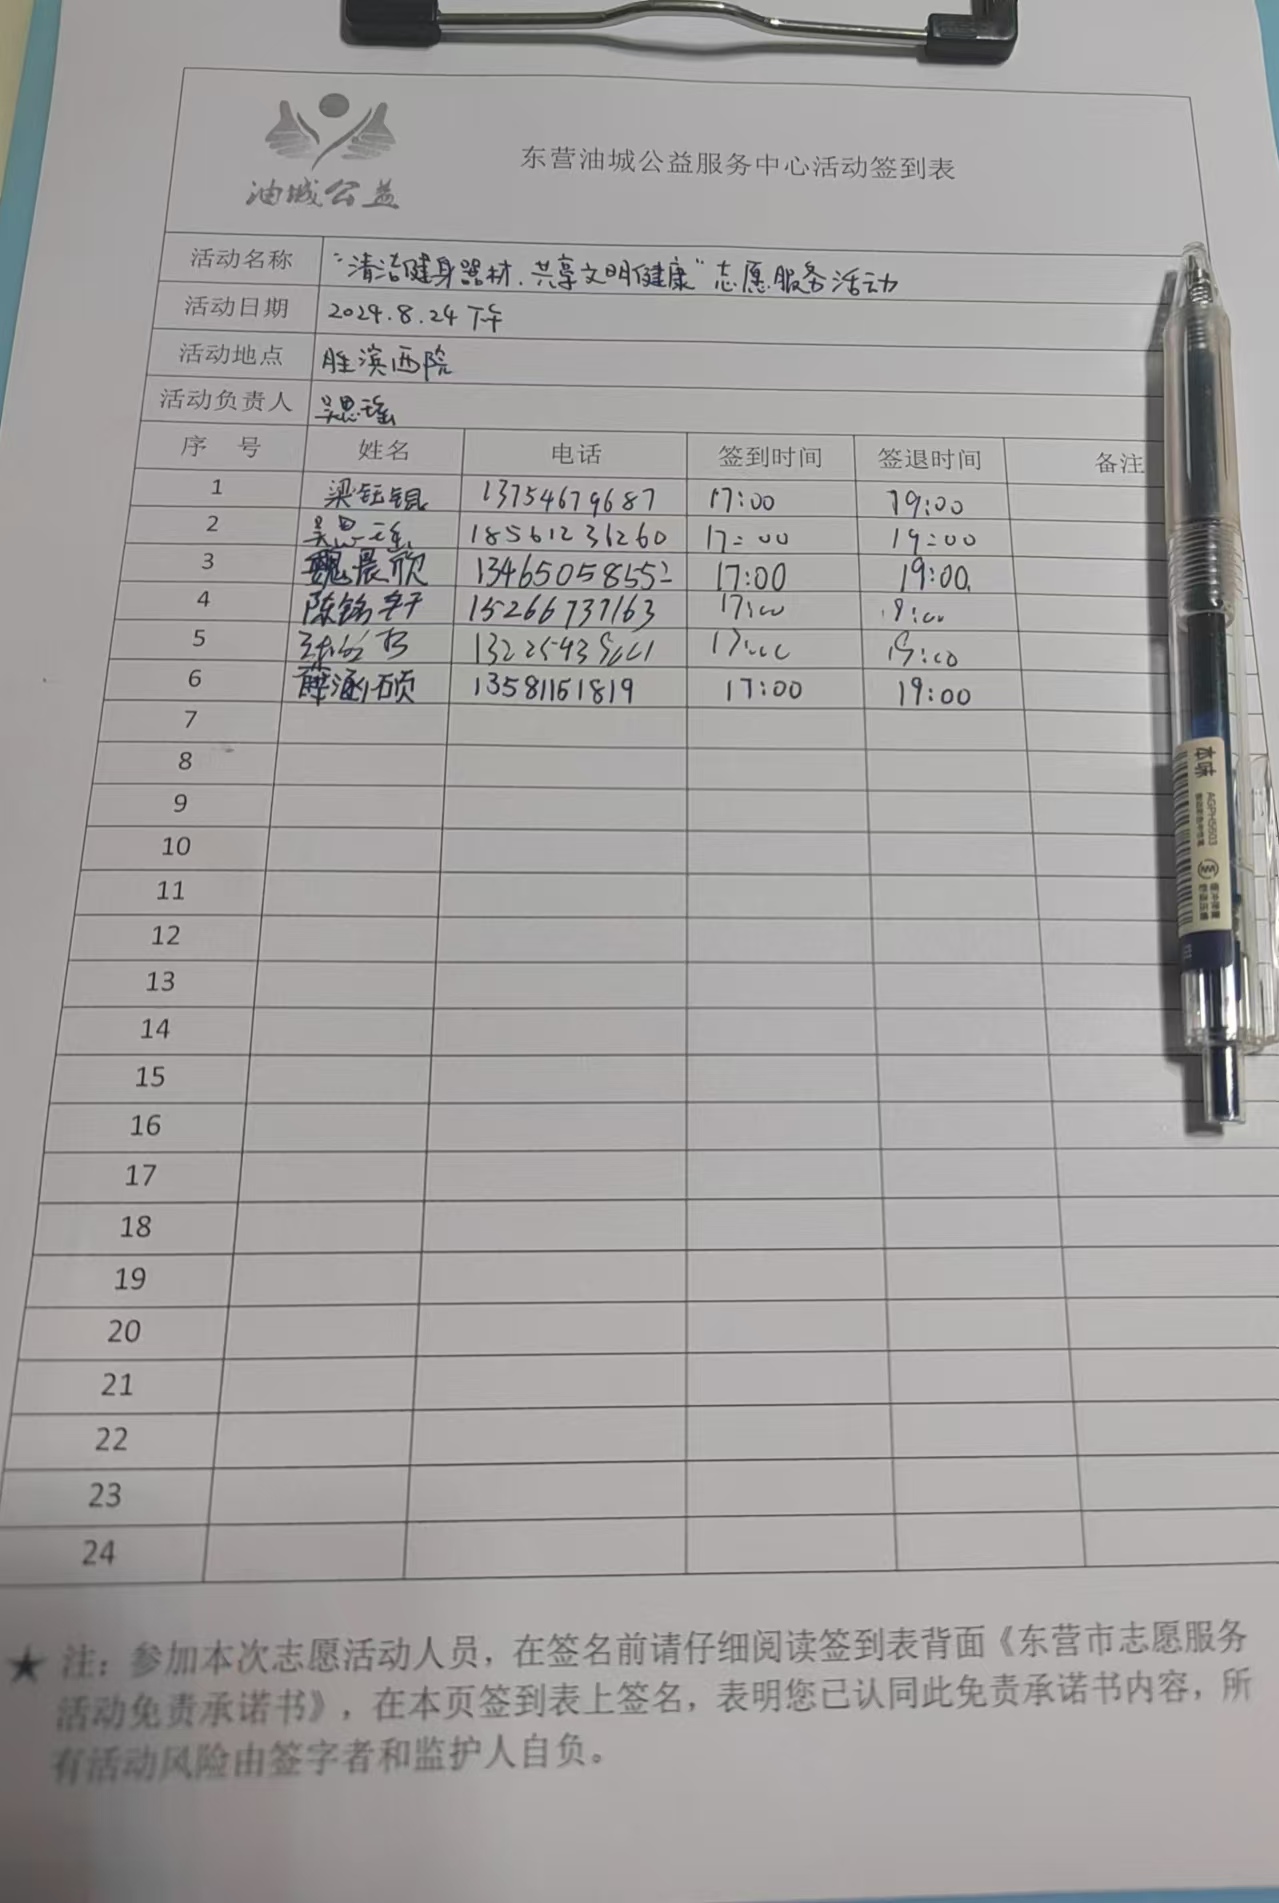 油城公益
东营油城公益服务中心活动签到表
活动名称 “清洁健身器材.共享文明健康”志愿服务活动
活动日期 2024.8.24下午
活动地点 胜滨西院
活动负责人 吴思瑶
序 号 姓名 电话 签到时间 签退时间 备注
1 梁钰锟 13754679687 17:00 19:00
2 吴思瑶 18561236260 17:00 19:00
3 魏晨欣 13465058552 17:00 19:00
4 陈铭轩 15266737163 17:00 19:00
5 17:00 19:00
6 薛涵硕 13581151819 17:00 19:00
7
8
9
10
11
12
13
14
15
16
17
18
19
20
21
22
23
24
★ 注：参加本次志愿活动人员，在签名前请仔细阅读签到表背面《东营市志愿服务
活动免责承诺书》，在本页签到表上签名，表明您已认同此免责承诺书内容，所
有活动风险由签字者和监护人自负。
本味
AGPH5503